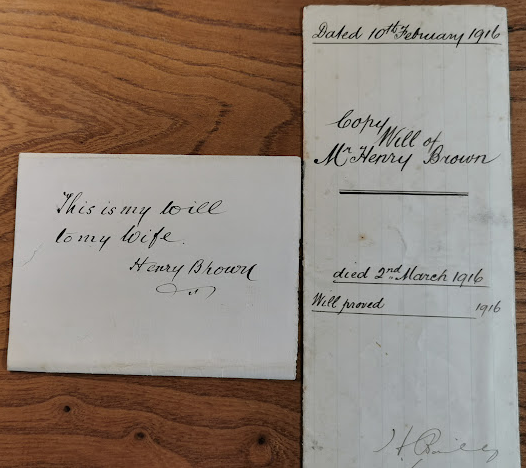 This is my will
to my Wife.
Henry Brown
Dated 10th February 1916
Copy Will of
Mr Henry Brown
died 2nd March 1916
Will proved 1916